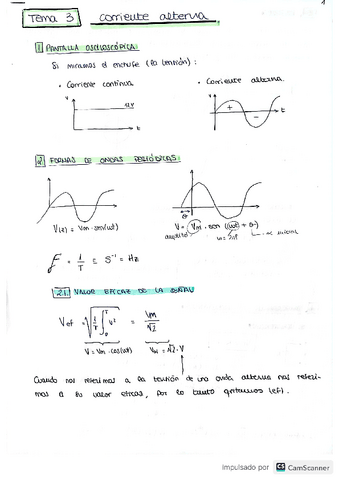 Tema 3 corriente alterna
1
1 PANTALLA OSCILOSCÓPICA
Si miramos el enchufe (la tensión):
· Corriente continua
· Corriente alterna.
V
t
V
+
-
t
2 FORMAS DE ONDAS PERIÓDICAS
V(t) = Vm · sen(ωt)
V = Vm · sen (ωt + θ)
f = 1/T = S⁻¹ = Hz
2.1. VALOR EFICAZ DE LA SEÑAL
Vef = √(1/T ∫₀ᵀ V²) = Vm/√2
V = Vm · cos(ωt)
Vm = √2 · V
Cuando nos referimos a la tensión de una onda alterna nos referi-
mos a su valor eficaz, por lo tanto
Impulsado por CS CamScanner